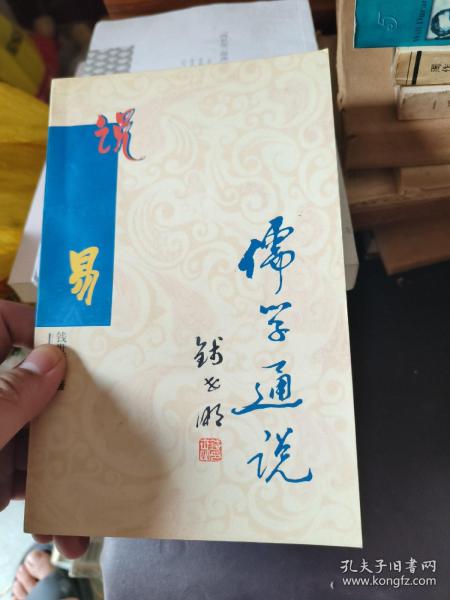 说
易
儒学通说
钱世明
钱世
5
孔夫子旧书网
www.kongfz.com